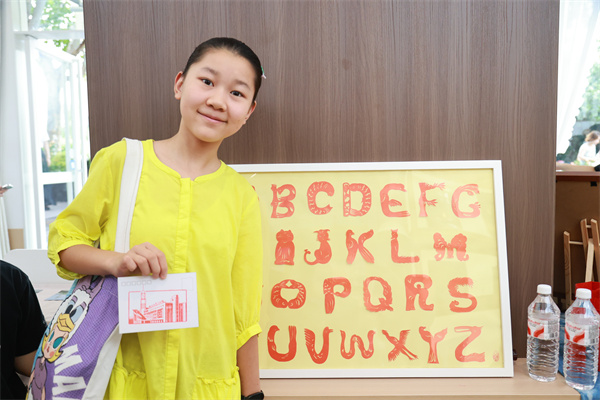 BCDEFG
IJKLM
OPQRS
UVWXYZ